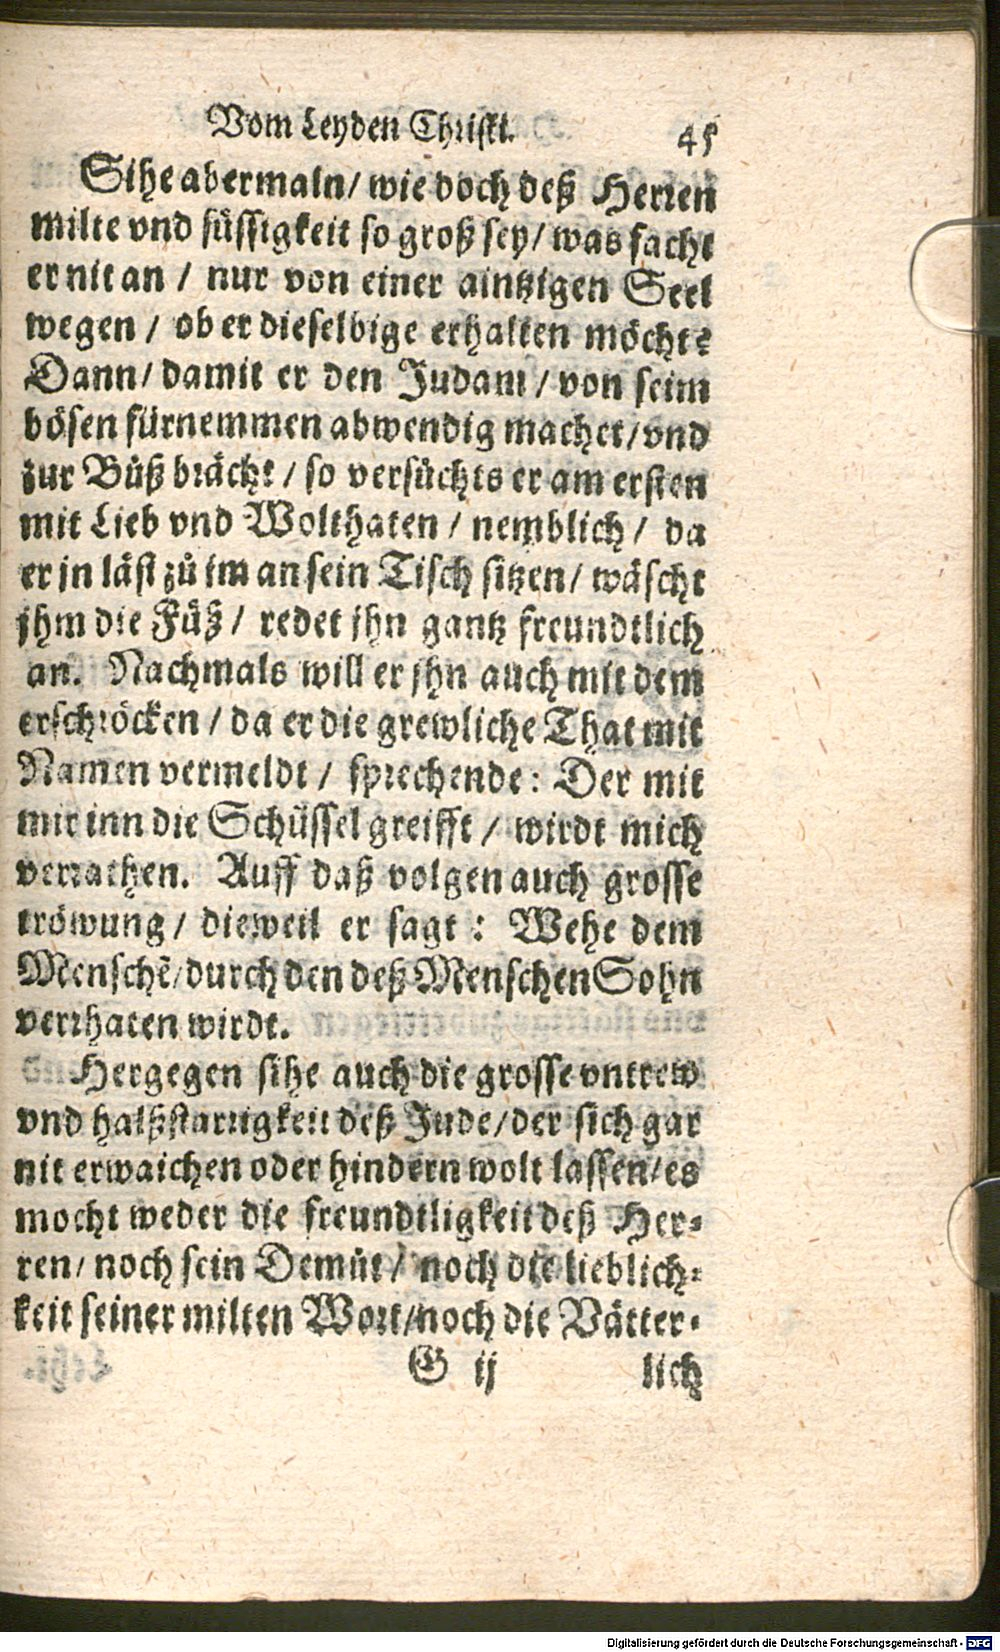 Vom Leyden Christi. 45
Sihe abermaln/ wie doch deß Herren
milte vnd süssigkeit so groß sey/ was facht
er nit an / nur von einer aintzigen Seel
wegen / ob er dieselbige erhalten möcht?
Dann/ damit er den Judam / von seim
bösen fürnemmen abwendig machet/ vnd
zur Bůß brächt / so versůchts er am ersten
mit Lieb vnd Wolthaten / nemblich / da
er jn läst zů im an sein Tisch sitzen/ wäscht
jhm die Füß / redet jhn gantz freundtlich
an. Nachmals will er jhn auch mit dem
erschröcken / da er die grewliche That mit
Namen vermeldt / sprechende: Der mit
mir inn die Schüssel greifft / wirdt mich
verrathen. Auff daß volgen auch grosse
tröwung / dieweil er sagt : Wehe dem
Menschē/ durch den deß Menschen Sohn
verrhaten wirdt.
Hergegen sihe auch die grosse vntrew
vnd halßstarrigkeit deß Jude/ der sich gar
nit erwaichen oder hindern wolt lassen/ es
mocht weder die freundtligkeit deß Her-
ren/ noch sein Demůt / noch die lieblich-
keit seiner milten Wort/ noch die Vätter-
G ij lich
Digitalisierung gefördert durch die Deutsche Forschungsgemeinschaft - DFG